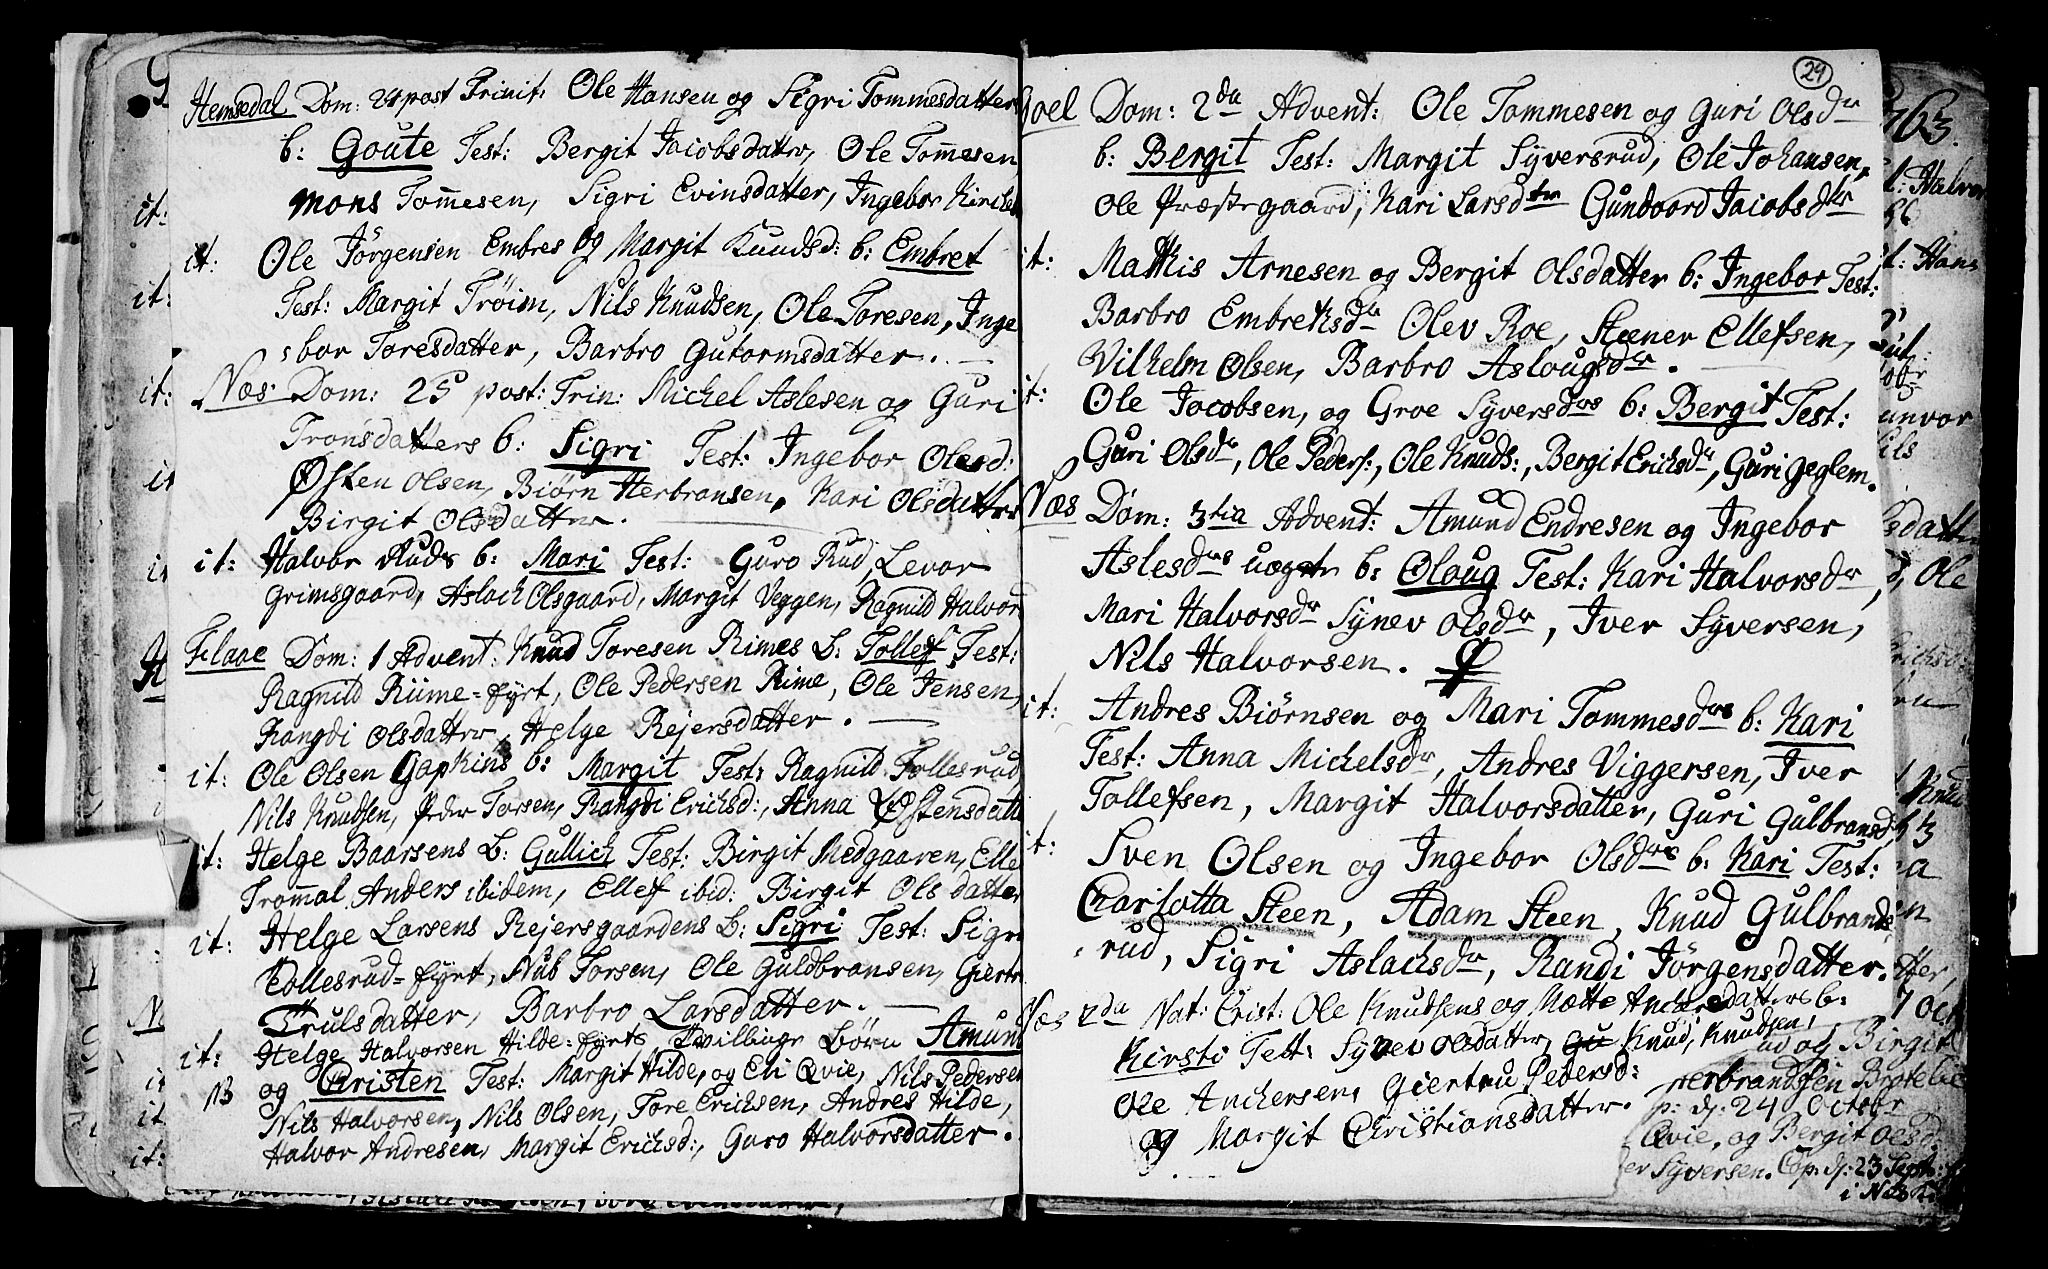 Hemsedal Dom: 24 post Trinit: Ole Hansen og Sigri Tommesdatter
b: Goute Test: Bergit Jacobsdatter, Ole Tom̄esen
Mons Tom̄esen, Sigri Evinsdatter, Ingebor
it: Ole Jörgensen Embres og Margit Knudsd: b: Embret
Test: Margit Tröim, Nils Knudsen, Ole Toresen, Inge
bor Toresdatter, Barbro Gutormsdatter.
Næs Dom: 25 post: Trin: Michel Aslesen og Guri
Tronsdatters b: Sigri Test: Ingebor Olesd:
Østen Olsen, Biörn Herbransen, Kari Olsdatter
Birgit Olsdatter.
it: Halvor Ruds b: Mari Test: Guro Rud, Levor
Grimsgaard, Aslach Olsgaard, Margit Veggen, Ragnild Halvor
Flaae Dom: 1 Advent: Knud Toresen Rimes b: Tollef Test:
Ragnild Riime=fyrt, Ole Pedersen Rime, Ole Jensen,
Rangdi Olsdatter, Helge Rejersdatter.
it: Ole Olsen Gapkins b: Margit Test: Ragnild Tollesrud,
Nils Knudsen, Peder Torsen, Rangdi Erichsd:, Anna Østensdatte
it: Helge Baarsens b: Gullich Test: Birgit Medgaaren, Elle
Trom̄al, Anders ibidem, Ellef ibid: Birgit Olsdatter
it: Helge Larsens Rejersgaardens b: Sigri Test: Sigri
Tollesrud=fyrt, Nub Torsen, Ole Guldbransen, Giertr
Trulsdatter, Barbro Larsdatter.
it: Helge Halvorsen Hilde=fyrts Tvillinge Börn Amun
NB og Christen Test: Margit Hilde, og Eli Qvie, Nils Pedersen
Nils Halvorsen, Nils Olsen, Tore Erichsen, Andres Hilde,
Halvor Andresen, Margit Erichsd:, Guro Halvorsdatter.
29
Goel Dom: 2da Advent: Ole Tommesen og Guri Olsdr
b: Bergit Test: Margit Syversrud, Ole Johansen,
Ole Præstegaard, Kari Larsdtr Gundoord Jacobsdtr
it: Mathis Arnesen og Bergit Olsdatter b: Ingebor Test:
Barbro Embreksdr Olev Roe, Steener Ellefsen,
Vilhelm Olsen, Barbro Aslougsdr.
it: Ole Jacobsen, og Groe Syversdrs b: Bergit Test:
Guri Olsdr, Ole Peders:, Ole Knuds:, Bergit Erichsdr, Guri Geglem.
Næs Dom: 3tia Advent: Amund Endresen og Ingebor
Aslesdrs uægte b: Oloug Test: Kari Halvorsdr,
Mari Halvorsdr Synev Olsdr, Iver Syversen,
Nils Halvorsen.
it: Andres Biörnsen og Mari Tommesdrs b: Kari
Test: Anna Michelsdr, Andres Viggersen, Iver
Tollefsen, Margit Halvorsdatter, Guri Gulbransd
it: Sven Olsen og Ingebor Olsdrs b: Kari Test:
Charlotta Steen, Adam Steen, Knud Gulbrands
rud, Sigri Aslachsdr, Randi Jörgensdatter.
Næs 2da Nat: Crist: Ole Knudsens og Mætte Anchersdatters b:
Kirsti Test: Synev Olsdatter, Knud Knudsen,
Ole Anchersen, Giertru Pedersd:
og Margit Christiansdatter.
763.
t: Halvor
t: Hans
unvor
Nils
sdatter
Ole
Knu
7 Oct
ud og Birgit
Herbrandsen Brotelie
p: d: 24 Octobr
Qvie, og Bergit Olsd:
er Syversen. Cop: d: 23 Sept: